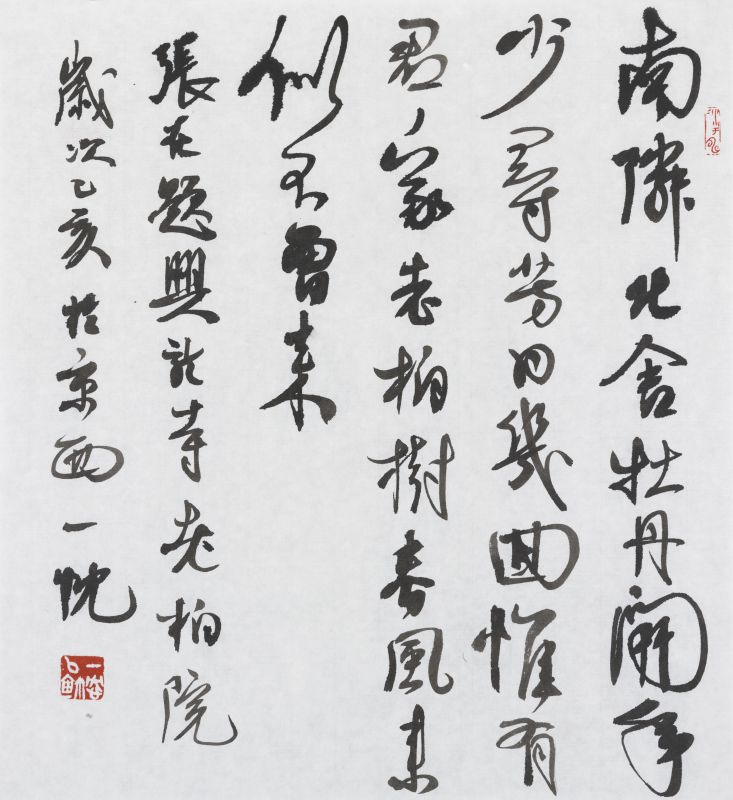 南隣北舍牡丹開年
少尋芳日幾回惟有
君家老柏樹春風来
似不曾来
張在題興龍寺老柏院
歲次乙亥於京西一忱